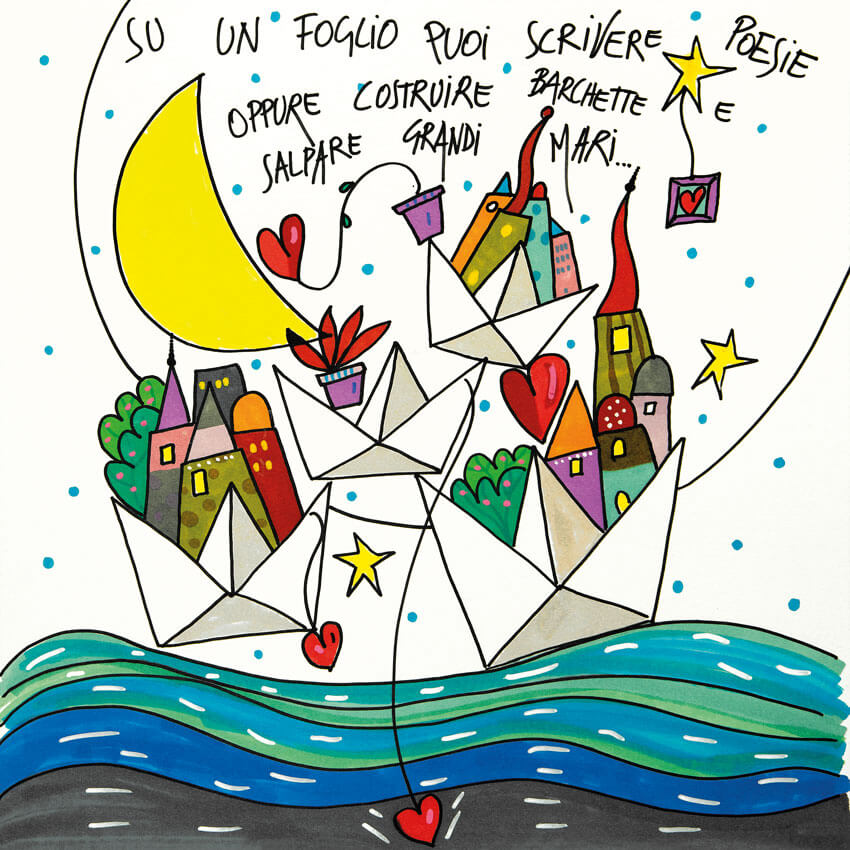 SU UN FOGLIO PUOI SCRIVERE POESIE
OPPURE COSTRUIRE BARCHETTE E
SALPARE GRANDI MARI...